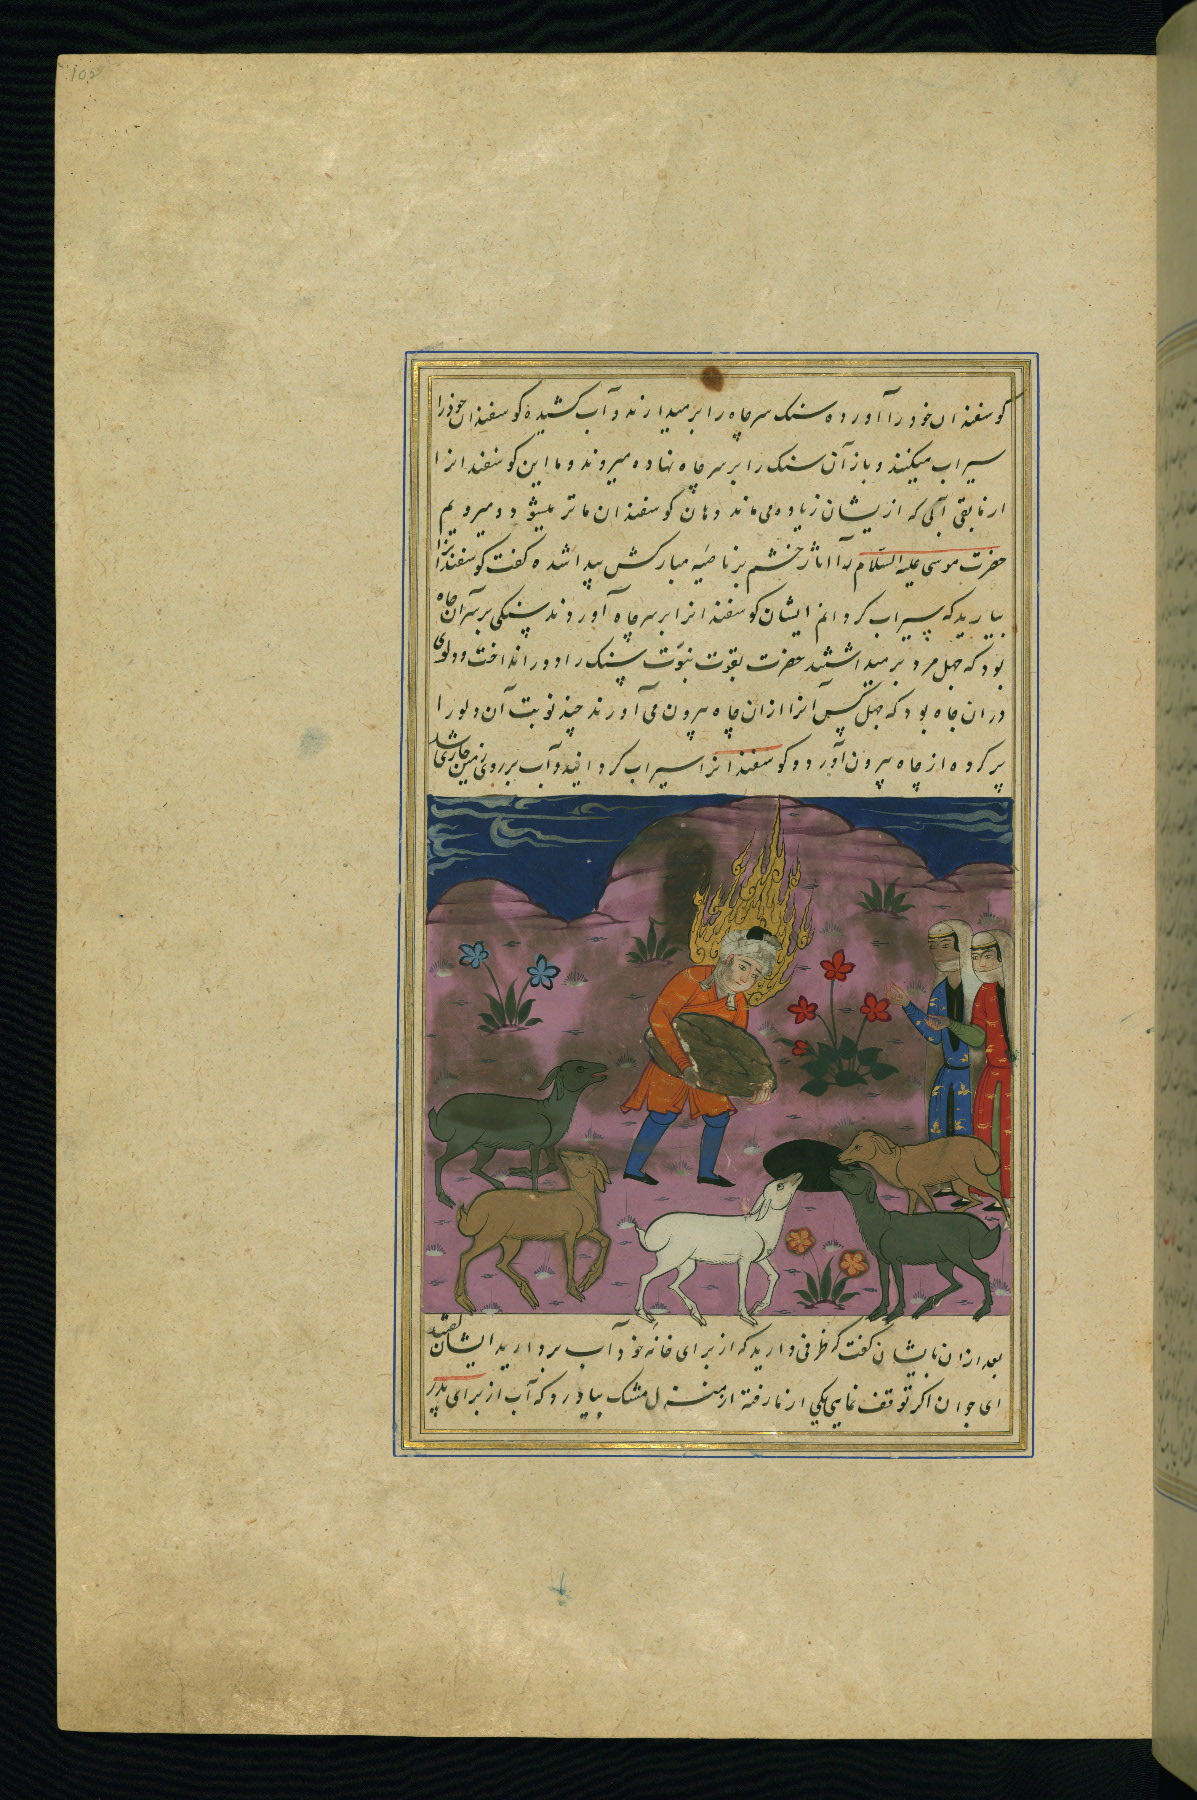 102
کوسفندان خود را آورده سنک سر چاه را برمیدارند و آب کشیده کوسفندان خود را
سیراب میکنند و باز آن سنک را بر سر چاه نهاده میروند و ما این کوسفندانرا
از مابقی آبی که از یشان زیاده می ماند دهان کوسفندان ما تر میشود و میرویم
حضرت موسی علیه السلام را آثار خشم بر ناصیه مبارکش پیدا شده کفت کوسفندانرا
بیارید که سیراب کردانم ایشان کوسفندانرا بر سر چاه آوردند سنکی بر سر آن چاه
بود که چهل مرد برمیداشتند حضرت بقوت نبوت سنک را دور انداخت و دلوی
دران چاه بود که چهل کس آنرا از ان چاه بیرون می آوردند چند نوبت آن دلو را
پر کرده از چاه بیرون آورد و کوسفندانرا سیراب کردانید و آب بر روی زمین جاری شد
بعد ازان بایشان کفت که ظرفی دارید که از برای خانهٔ خود آب بردارید ایشان کفتند
ای جوان اکر توقف نمایی یکی از ما رفته از منزل مشک بیاورد که آب از برای پدر